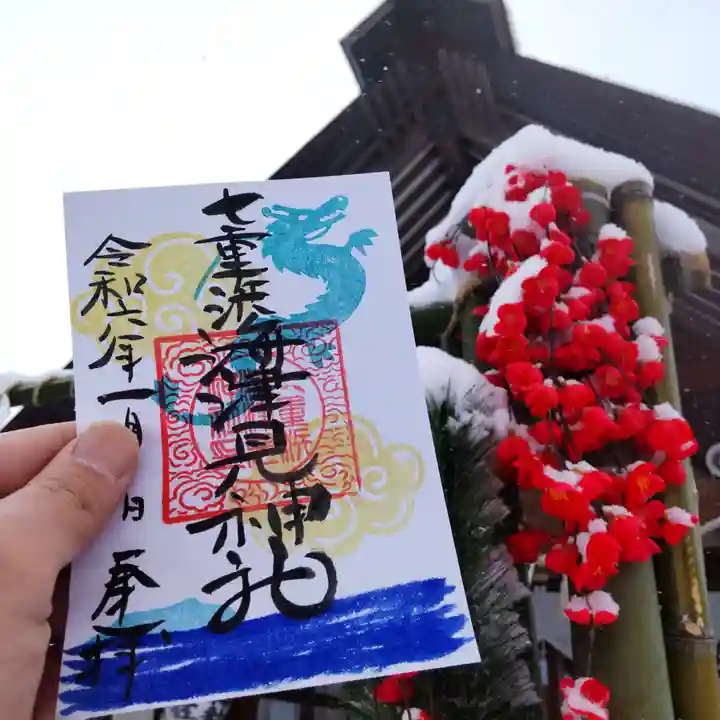 七重浜
海津見神社
令和六年一月 日 奉拝